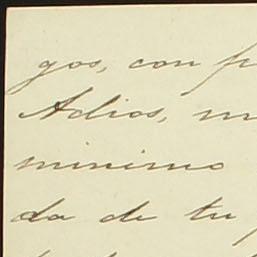 gos, con
Adios,
minimo
da de tu